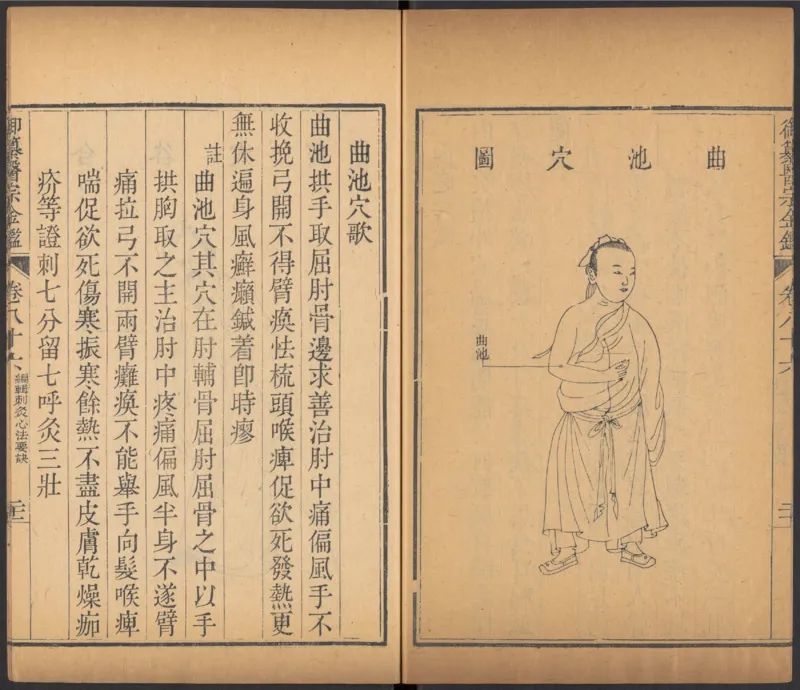 御纂醫宗金鑑
卷八十六
曲池穴圖
曲池
曲池穴歌
曲池拱手取屈肘骨邊求善治肘中痛偏風手不
收挽弓開不得臂瘓怯梳頭喉痺促欲死發熱更
無休遍身風癬癩鍼着卽時瘳
註 曲池穴其穴在肘輔骨屈肘屈骨之中以手
拱胸取之主治肘中疼痛偏風半身不遂臂
痛拉弓不開兩臂癱瘓不能舉手向髮喉痺
喘促欲死傷寒振寒餘熱不盡皮膚乾燥痂
疥等證刺七分留七呼灸三壯
御纂醫宗金鑑
卷八十六
編輯刺灸心法要訣